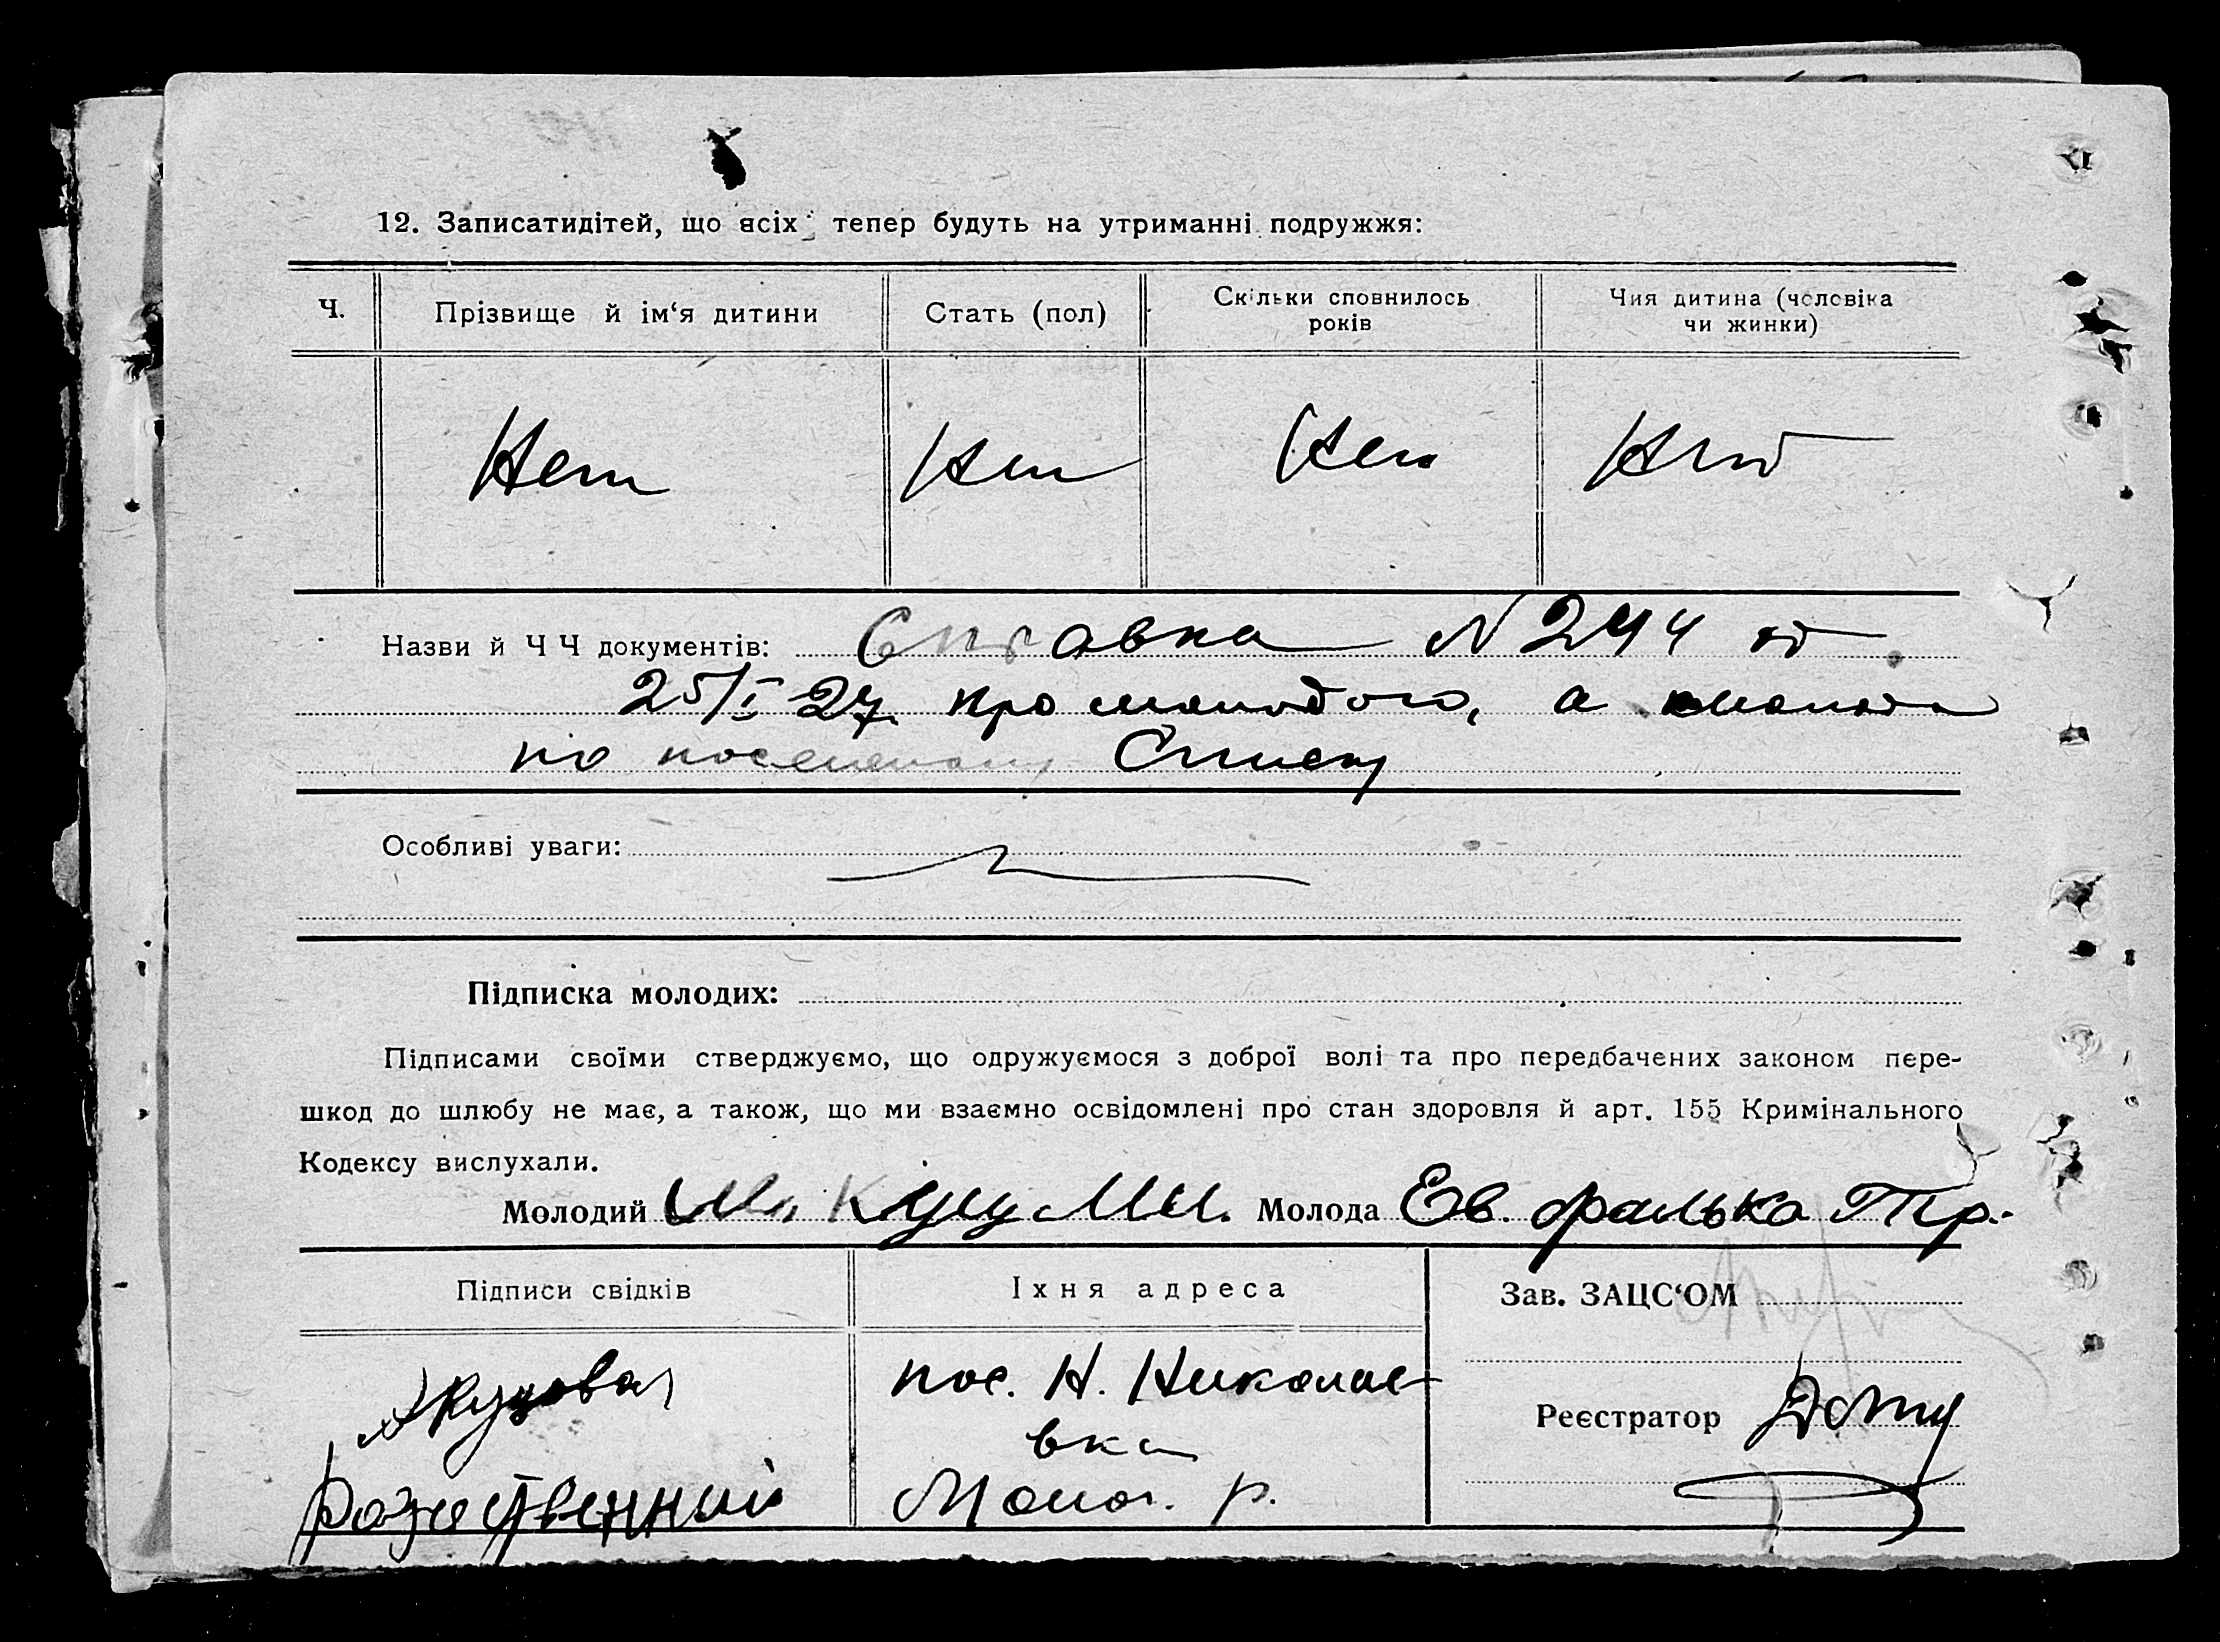 12. Записатидітей, що всіх тепер будуть на утриманні подружжя:
Ч.
Прізвище й ім‘я дитини
Стать (пол)
Скільки сповнилось
років
Чия дитина (чоловіка
чи жинки)
Нет Нет Нет Нет
Назви й Ч Ч документів: Справка N 244 от
25/I 27 про молодого, а молода
по посемейному Списку
Особливі уваги:
Підписка молодих:
Підписами своїми стверджуємо, що одружуємося з доброї волі та про передбачених законом пере-
шкод до шлюбу не має, а також, що ми взаємно освідомлені про стан здоровля й арт. 155 Кримінального
Кодексу вислухали.
Молодий Молода Ев. Фалько Тр.
Підписи свідків
Їхня адреса
Зав. ЗАЦС‘ОМ
пос. Н. Николае-
вка
Молоч. р.
Реєстратор